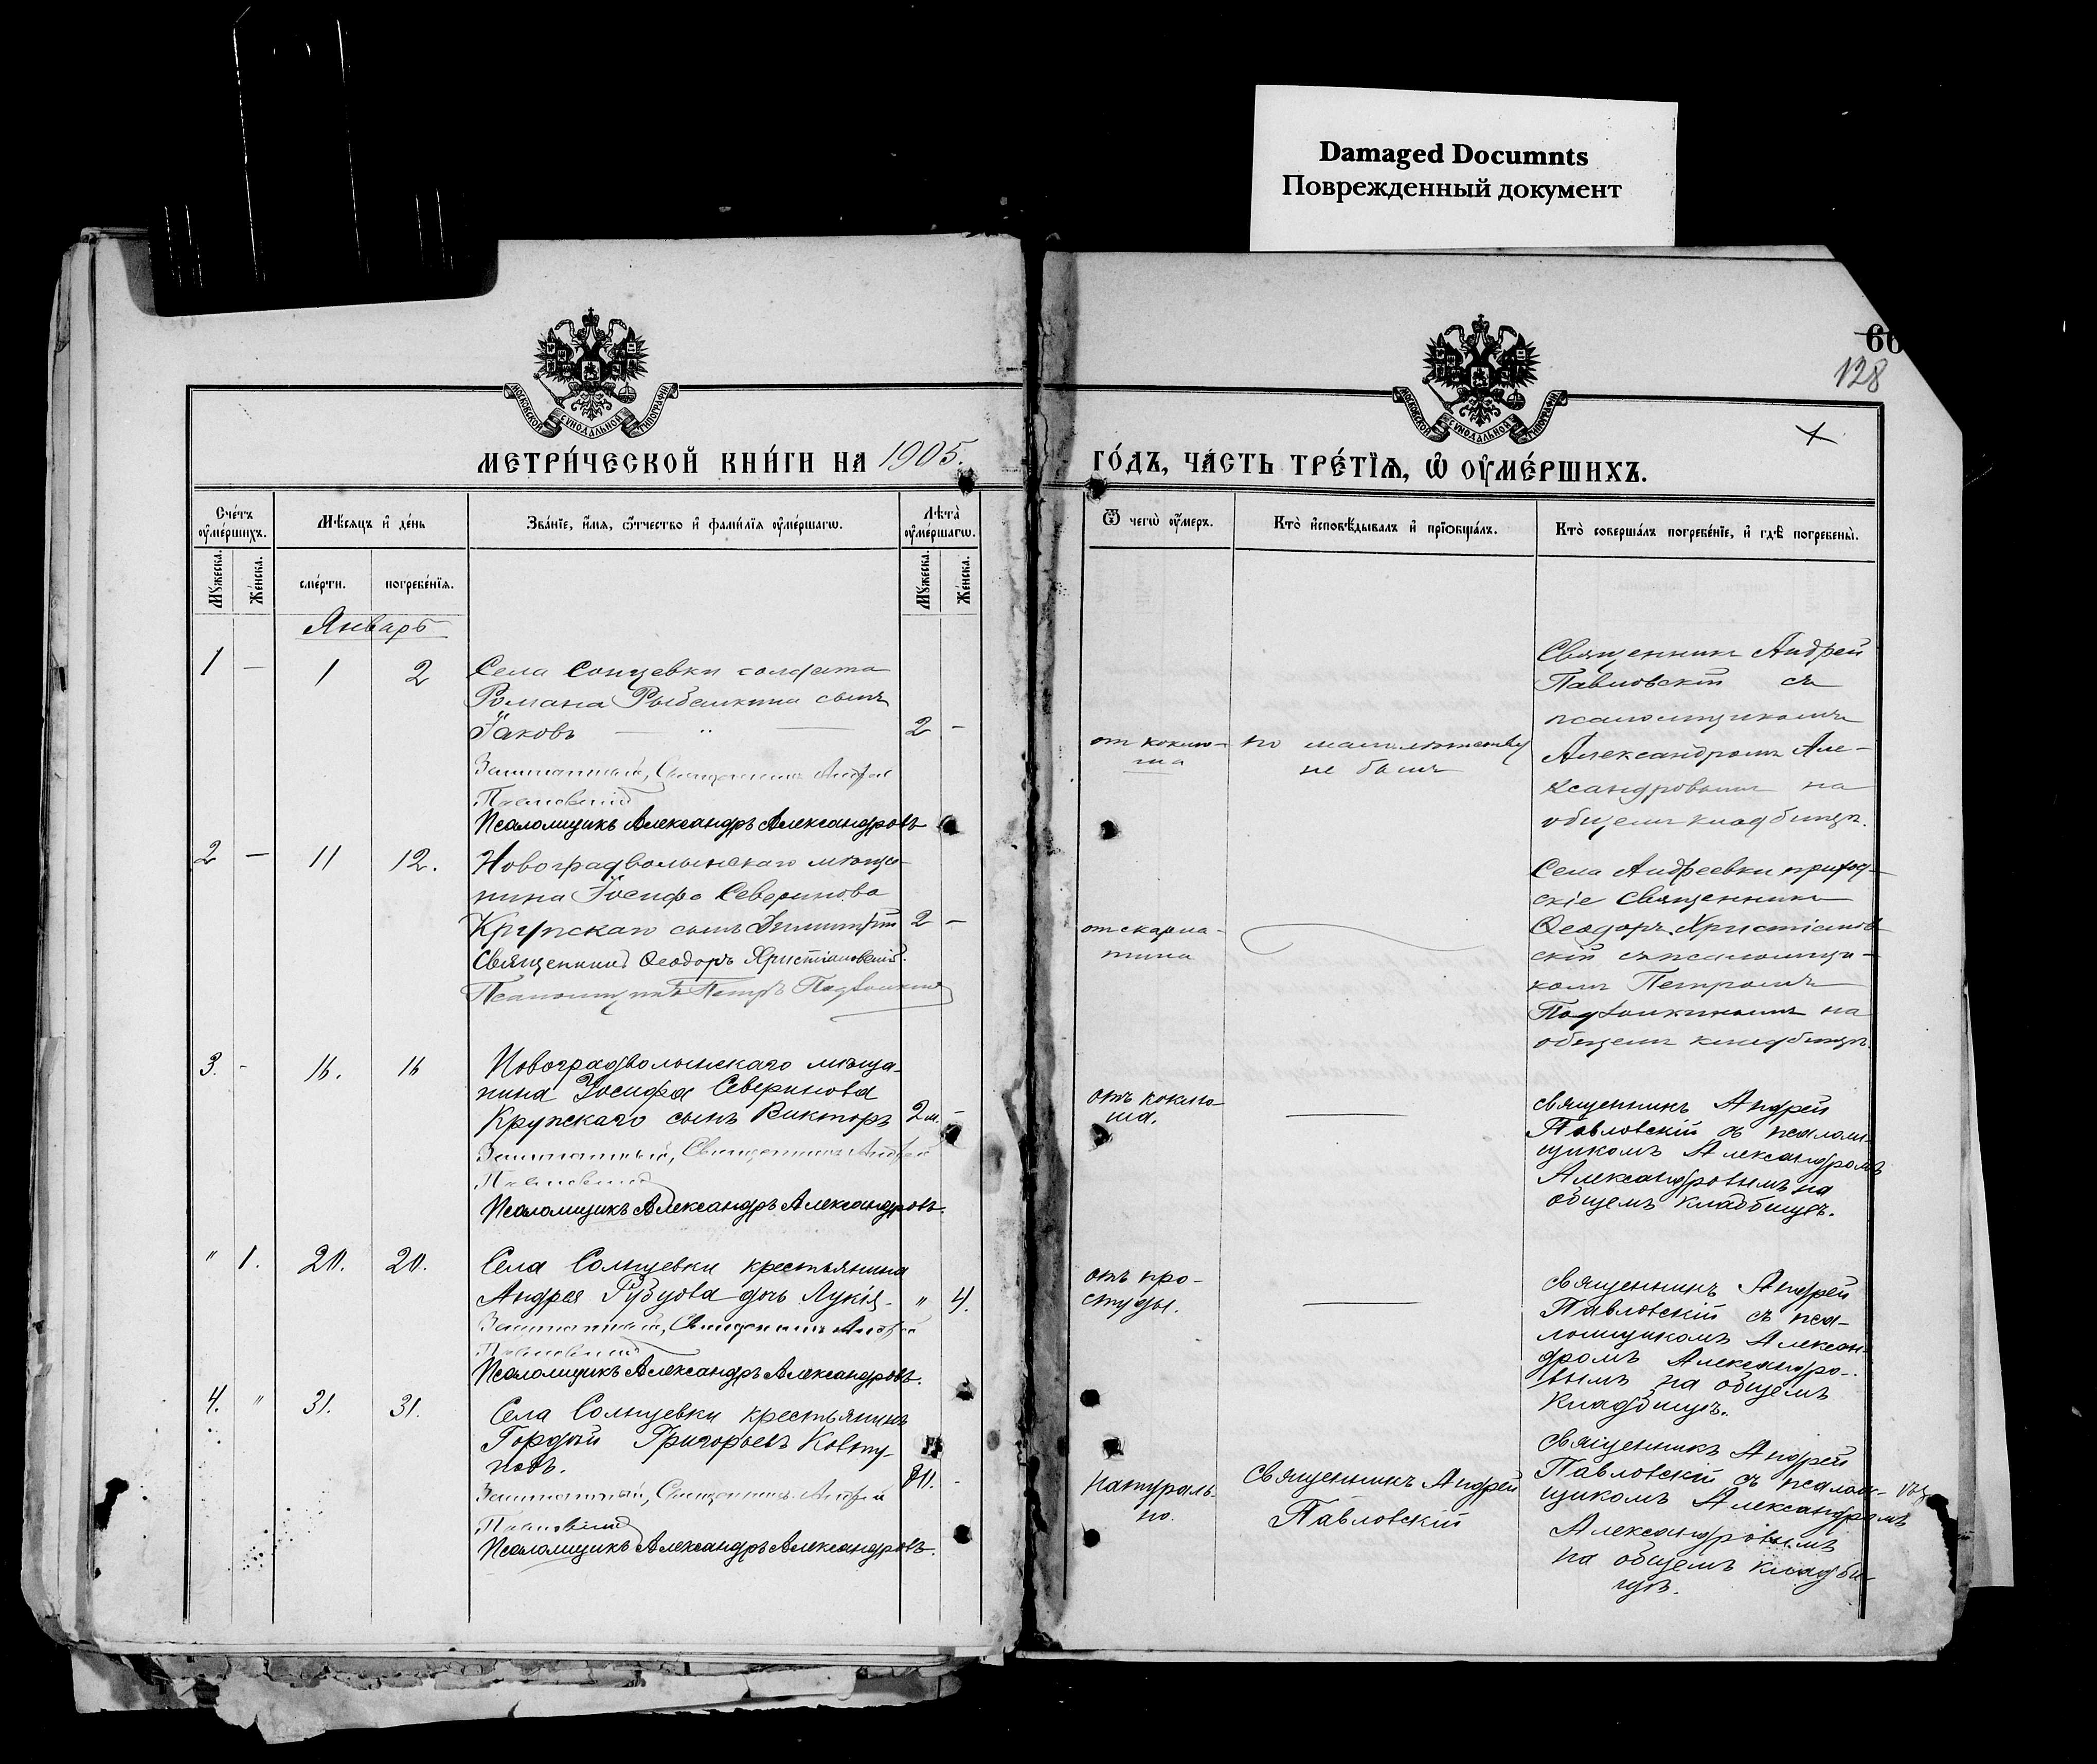 Damaged Documnts
Поврежденный документ
60
128
МОСКОВСКОЙ СѴНОДАЛЬНОЙ ТИПОГРАФІИ
МОСКОВСКОЙ СѴНОДАЛЬНОЙ ТИПОГРАФІИ
МЕТРИ́ЧЕСКОЙ КНИ́ГИ НА 1905.
ГО́ДЪ, ЧА́СТЬ ТРЕ́ТЇѦ, Ѡ҆ ОУ҆МЕ́РШИХЪ.
Сче́тъ оу҆ме́ршихъ.
Мѣ́сяцъ и҆ де́нь
Зва́нїе, и҆́мя, ѻ҆́тчество и҆ фами́лїя оу҆ме́ршагѡ.
Лѣ́та оу҆ме́ршагѡ.
Мꙋ́жеска. Же́нска.
сме́рти. погребе́нїя.
Мꙋ́жеска. Же́нска.
Ѿ чегѡ̀ оу҆́меръ.
Кто̀ и҆сповѣ́дывалъ и҆ прїѡбща́лъ.
Кто̀ соверша́лъ погребе́нїе, и҆ гдѣ̀ погребены̀.
Январь
1 — 1 2
Села Сонцевки солдата
Романа Рыбалкина сынъ
Іаковъ — " —
2 —
Заштатный, Священникъ Андрей
Павловскій
Псаломщикъ Александръ Александровъ
от коклю-
ша
по малолѣтству
не былъ
Священник Андрей
Павловскій съ
псаломщикомъ
Александромъ Але-
ксандровымъ на
общемъ кладбищѣ.
2 — 11 12.
Новоградволынскаго мѣща-
нина Іосифа Северинова
Крупскаго сынъ Димитрій
2 —
Священникъ Ѳеодоръ Христіановскій.
Псаломщикъ Петръ
от скарла-
тина
Села Андреевки приход-
скіе Священникъ
Ѳеодоръ Христіанов-
скій съ псаломщи-
комъ Петромъ
на
общемъ кладбищѣ.
3. - 16. 16
Новоградволынскаго мѣща-
нина Іосифа Северинова
Крупскаго сынъ Викторъ
2 м. —
Заштатный, Священникъ Андрей
Павловскій
Псаломщикъ Александръ Александровъ.
отъ коклю-
ша.
священникъ Андрей
Павловскій съ псалом-
щикомъ Александромъ
Александровымъ на
общемъ кладбищѣ.
" 1. 20. 20.
Села Солнцевки крестьянина
Андрея Рубцова дочь Лукія.
" 4.
Заштатный, Священникъ Андрей
Павловскій
Псаломщикъ Александръ Александровъ.
отъ про-
студы.
священникъ Андрей
Павловскій съ пса-
ломщикомъ Алексан-
дромъ Александро-
вымъ на общемъ
кладбищѣ.
4. " 31. 31.
Села Солнцевки крестьянинъ
Гордей Григорьевъ Ковту-
новъ.
80. -
Заштатный, Священникъ Андрей
Павловскій
Псаломщикъ Александръ Александровъ.
натураль-
но.
Священникъ Андрей
Павловскій
священникъ Андрей
Павловскій съ псалом-
щикомъ Александромъ
Александровымъ
на общемъ кладби-
щѣ.